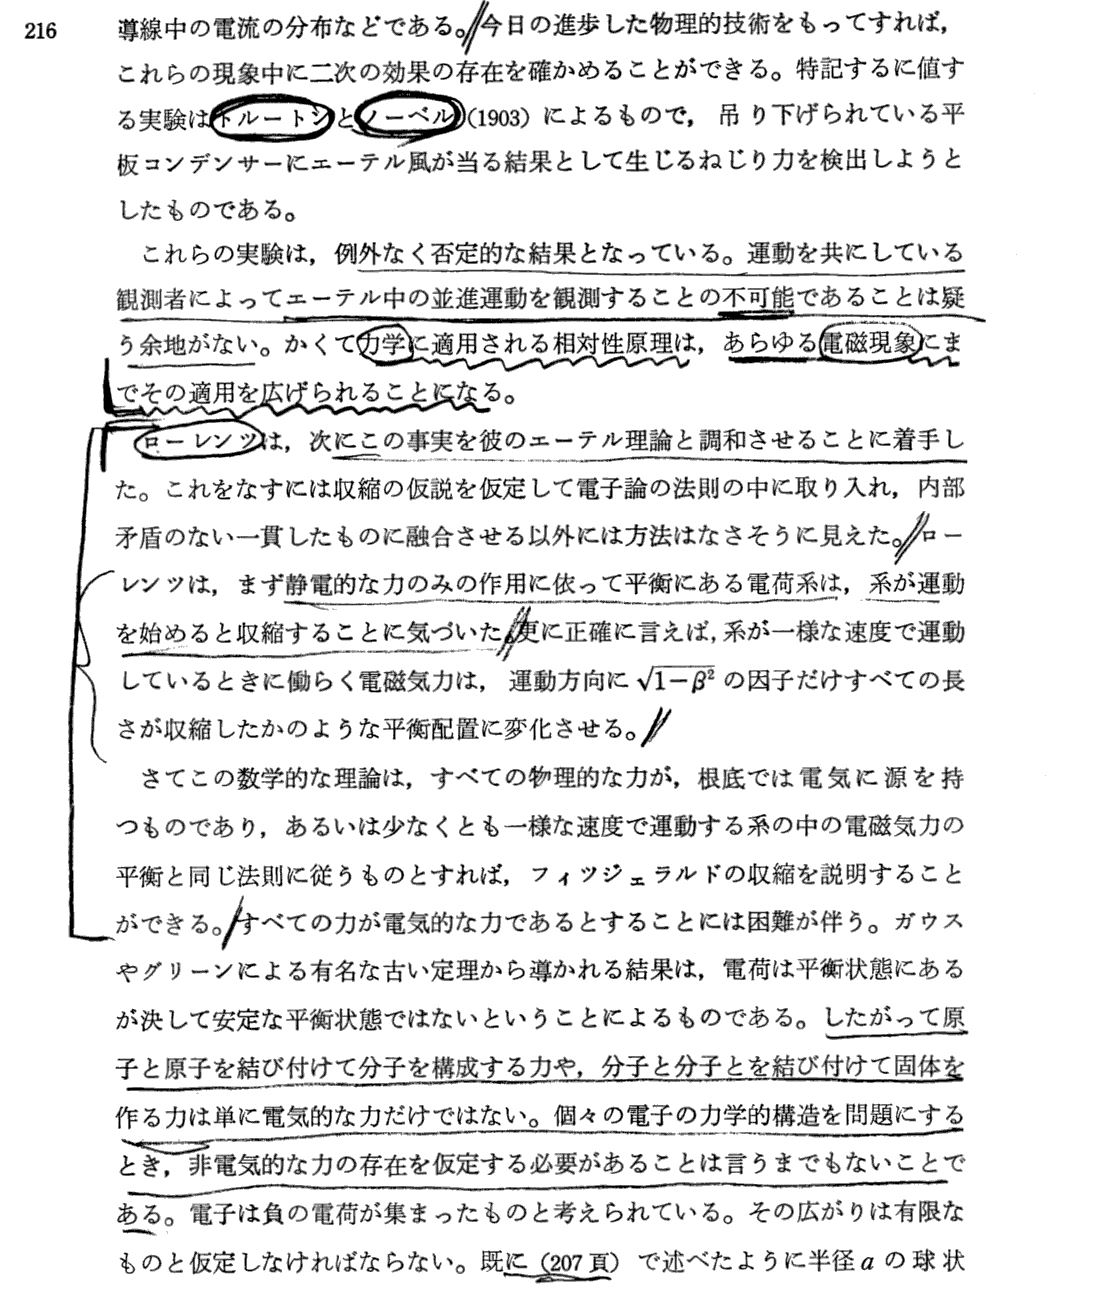 216
導線中の電流の分布などである。今日の進歩した物理的技術をもってすれば,
これらの現象中に二次の効果の存在を確かめることができる。特記するに値す
る実験はトルートンとノーベル(1903)によるもので, 吊り下げられている平
板コンデンサーにエーテル風が当る結果として生じるねじり力を検出しようと
したものである。
これらの実験は, 例外なく否定的な結果となっている。運動を共にしている
観測者によってエーテル中の並進運動を観測することの不可能であることは疑
う余地がない。かくて力学に適用される相対性原理は, あらゆる電磁現象にま
でその適用を広げられることになる。
ローレンツは, 次にこの事実を彼のエーテル理論と調和させることに着手し
た。これをなすには収縮の仮説を仮定して電子論の法則の中に取り入れ, 内部
矛盾のない一貫したものに融合させる以外には方法はなさそうに見えた。ロー
レンツは, まず静電的な力のみの作用に依って平衡にある電荷系は, 系が運動
を始めると収縮することに気づいた。更に正確に言えば, 系が一様な速度で運動
しているときに働らく電磁気力は, 運動方向に √1−β² の因子だけすべての長
さが収縮したかのような平衡配置に変化させる。
さてこの数学的な理論は, すべての物理的な力が, 根底では電気に源を持
つものであり, あるいは少なくとも一様な速度で運動する系の中の電磁気力の
平衡と同じ法則に従うものとすれば, フィツジェラルドの収縮を説明すること
ができる。すべての力が電気的な力であるとすることには困難が伴う。ガウス
やグリーンによる有名な古い定理から導かれる結果は, 電荷は平衡状態にある
が決して安定な平衡状態ではないということによるものである。したがって原
子と原子を結び付けて分子を構成する力や, 分子と分子とを結び付けて固体を
作る力は単に電気的な力だけではない。個々の電子の力学的構造を問題にする
とき, 非電気的な力の存在を仮定する必要があることは言うまでもないことで
ある。電子は負の電荷が集まったものと考えられている。その広がりは有限な
ものと仮定しなければならない。既に(207頁)で述べたように半径 a の球状